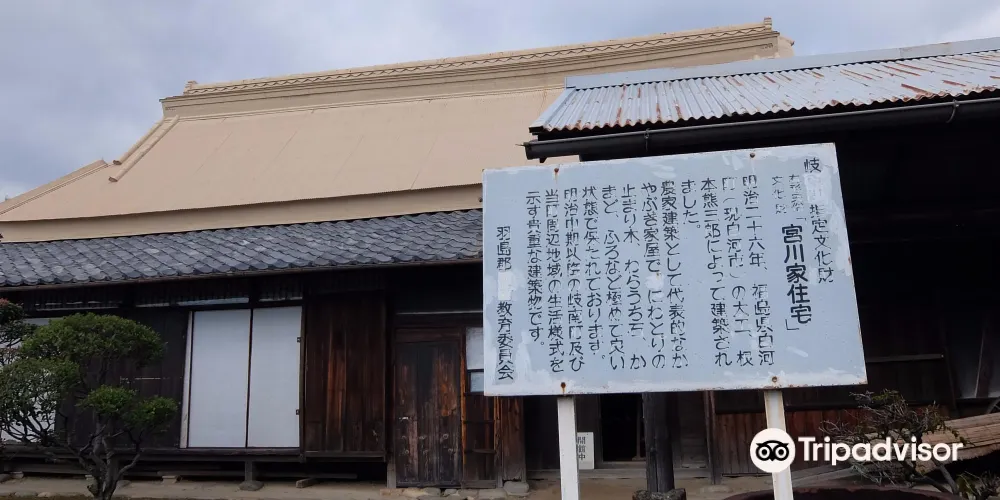 岐 指定文化財
「宮川家住宅」
明治二十六年、福島県白河
(現白河市)の大工、坂
本熊三郎によって建築され
ました。
農家建築として代表的なか
やぶき家屋で、にわとりの
止まり木、わらうち石、か
まど、ふろなど極めて良い
状態で保存されております。
明治中期以降の岐南町及び
当町周辺地域の生活様式を
示す貴重な建築物です。
羽島郡 教育委員会
開館中
Tripadvisor